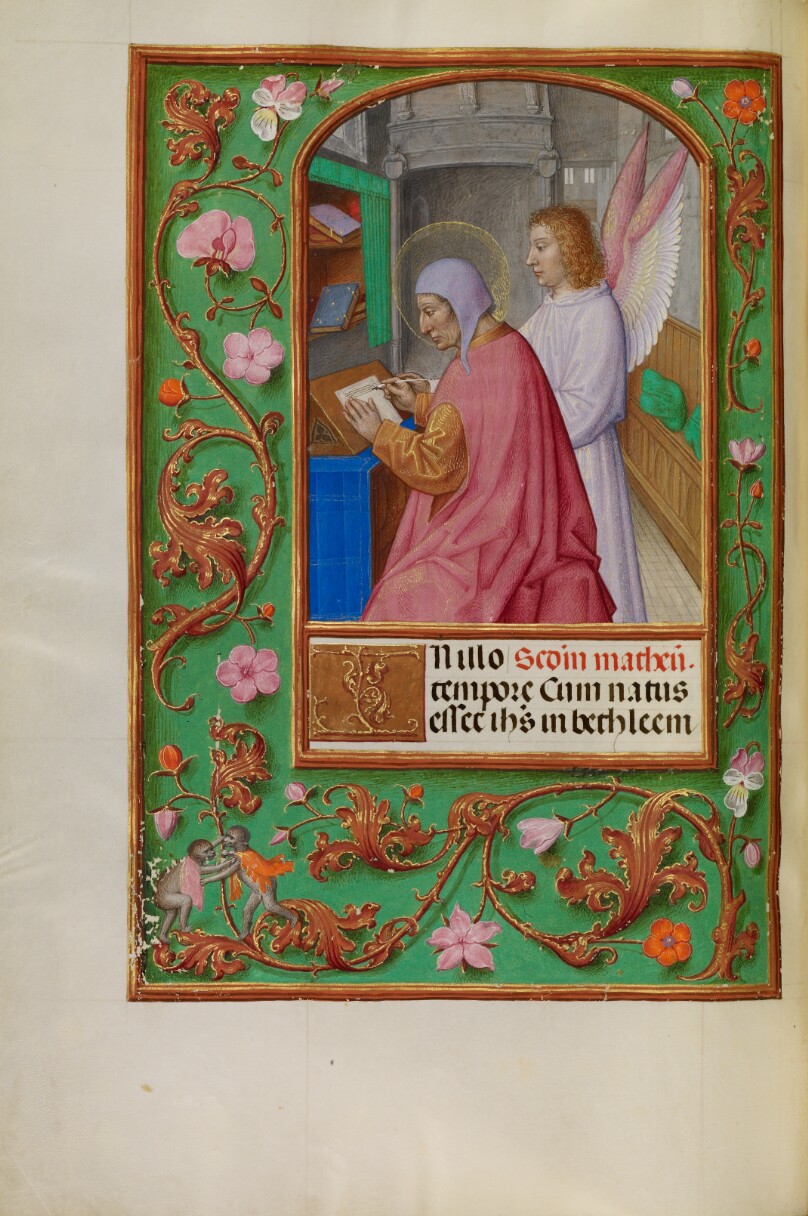 IN illo Scdm matheū.
tempore Cum natus
esset ihs in bethleem